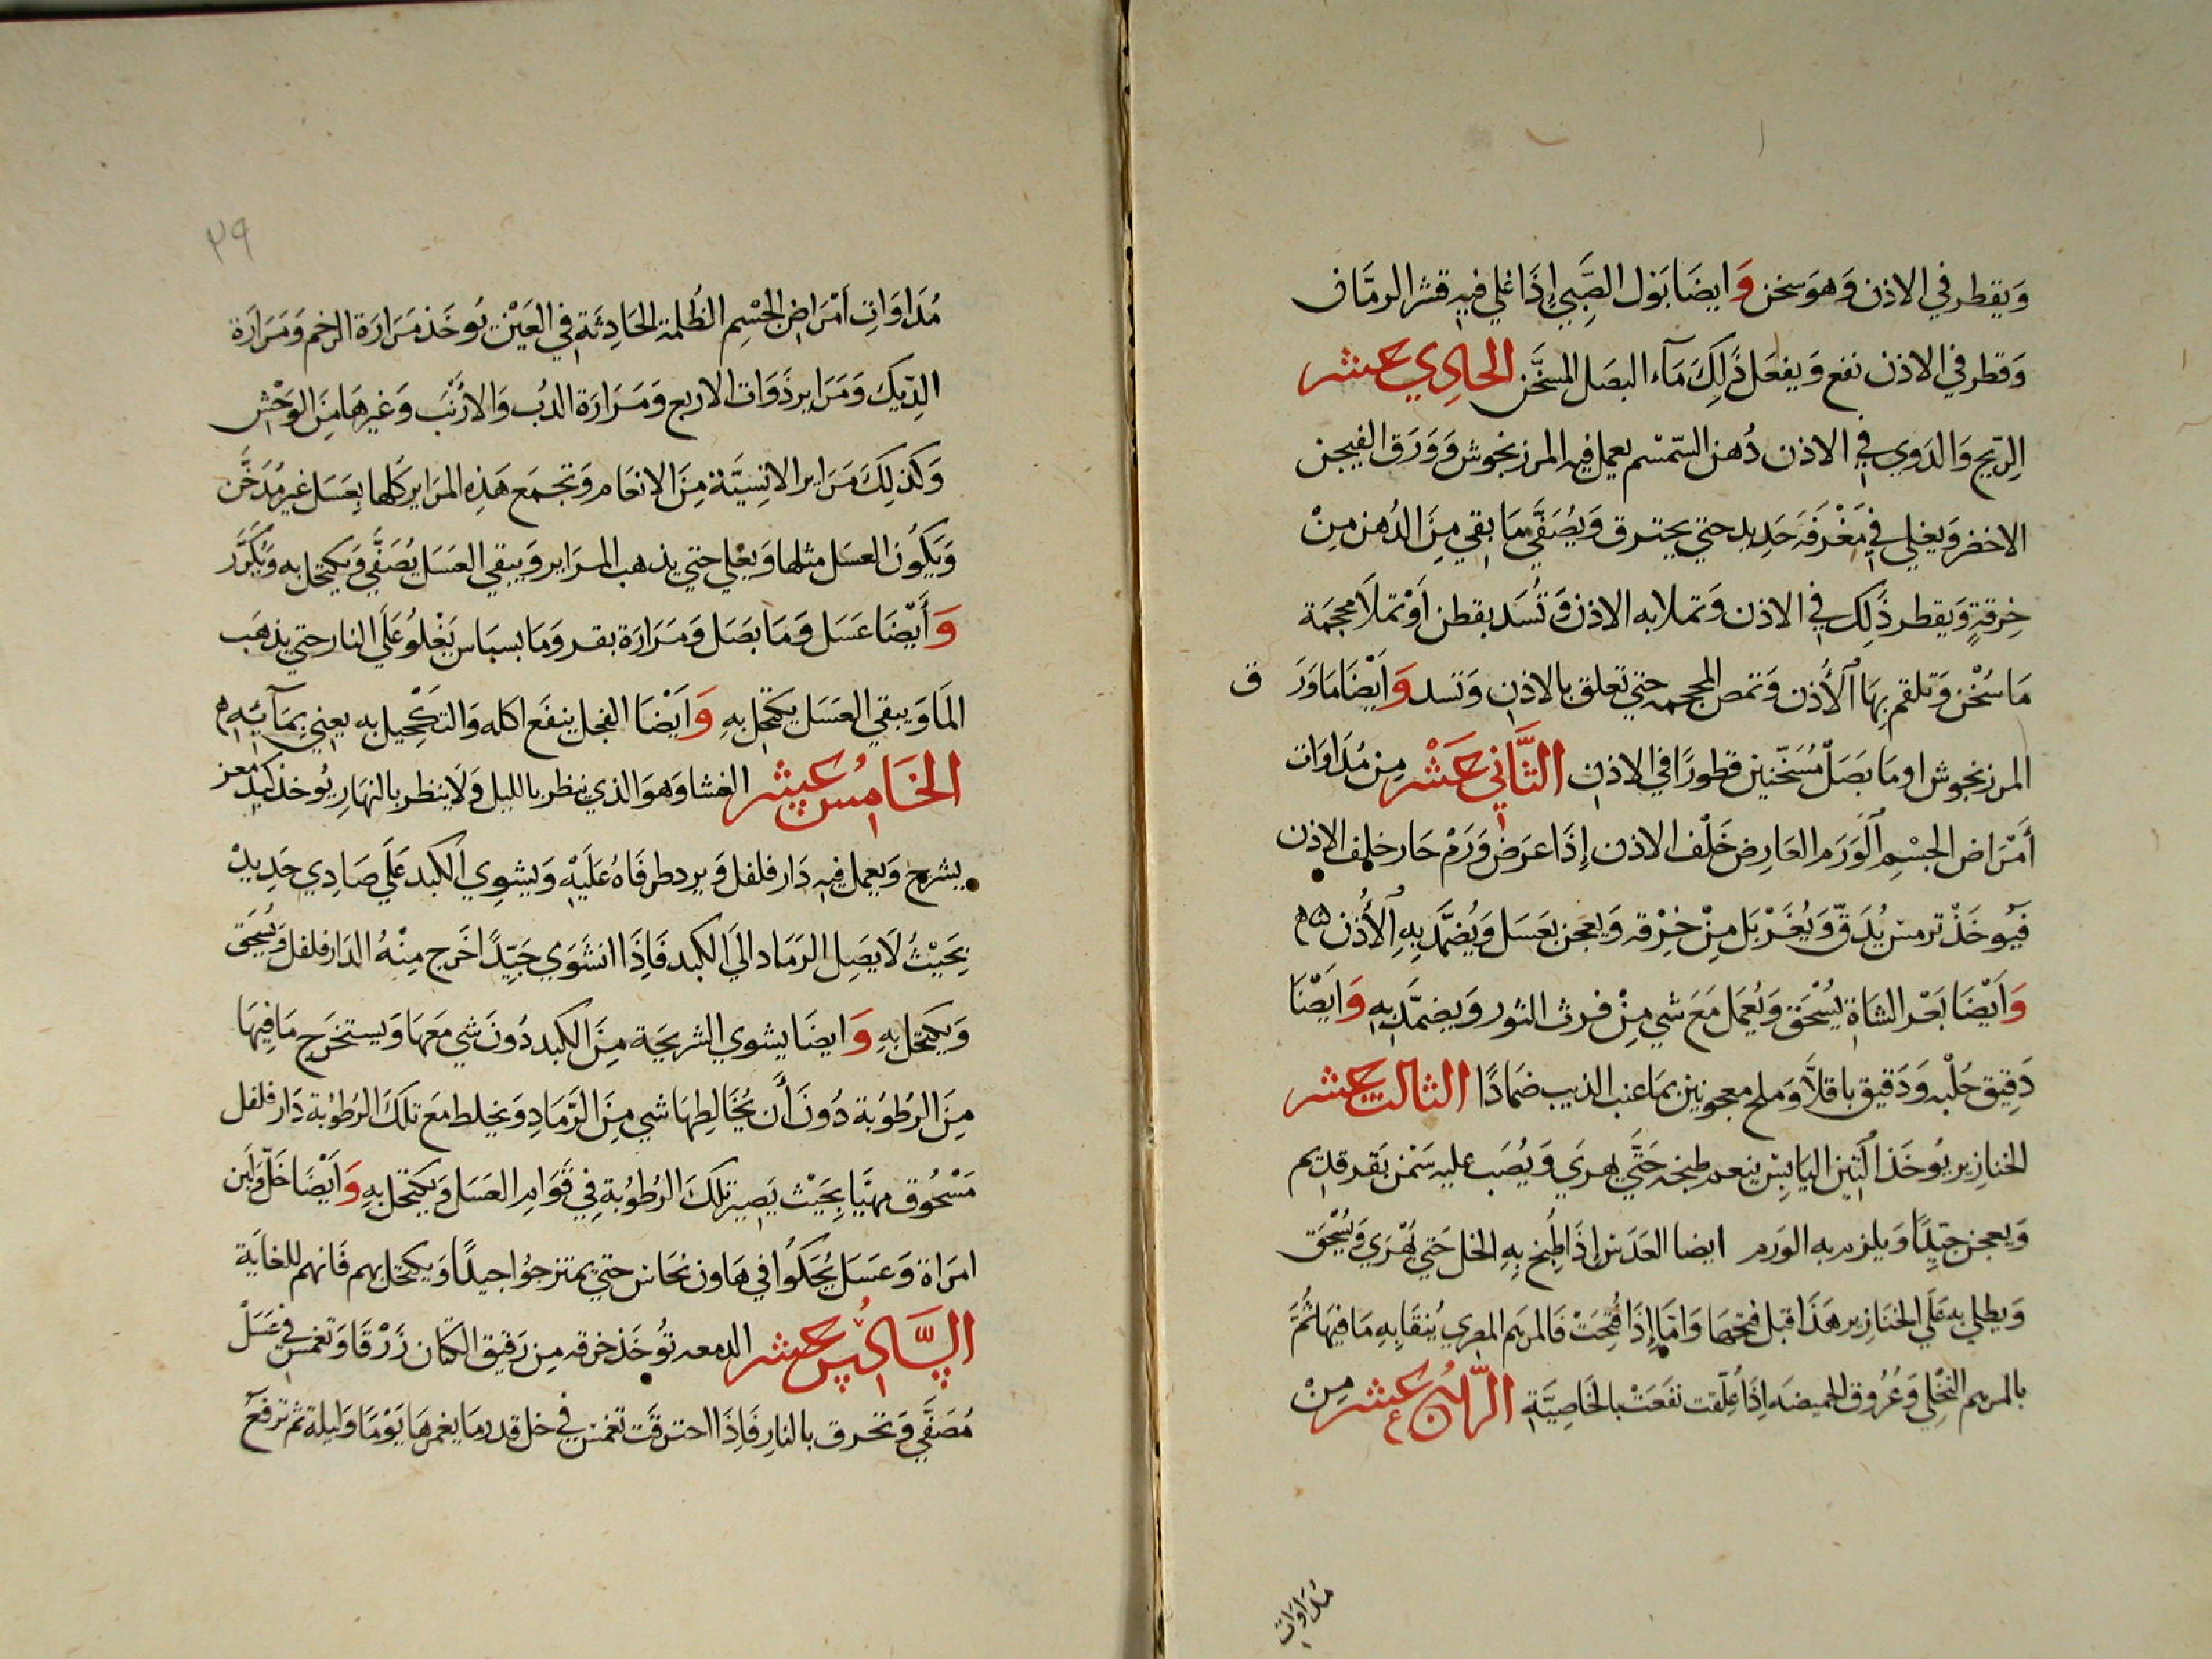 وَيقطر في الاذن وَهوَ سخن وَايضَا بَول الصَّبِي إِذَا غلي فيهِ قشر الرمَّان
وَقطر في الاذن نفع وَيفعَل ذَلِكَ مَآء البصَل المسخَّن الحادي عشر
الرِّيح وَالدَوي في الاذن دُهن السّمسْم يعمل فيه المرزنجوش وَوَرَق الفيجن
الاخضر وَيغلي في مَغْرَفَة حَدِيد حتي يحترق وَيُصَفَّي مَا بقي مِنَ الدُهن مِنْ
خِرقةٍ وَيقطر ذَلِك في الاذن وَتملا به الاذن وَتُسَد بقطن اَوْ تملَا محجَمَة
مَا سُخْن وَتلقم بِهَا الأُذن وَتمص المحجمه حتي تعلق بالاذن وَتسد وَاَيْضَا مَا وَرَق
المرزنجوش او مَا بَصَلْ مُسَخّنين قطورًا في الاذن الثَّانِي عَشْر مِن مُدَاوَات
أَمْرَاض الجسْمِ الوَرَم العَارِض خَلْف الاذن إِذَا عَرَض وَرَمْ حَار خلف الاذن
فَيُوخَذْ ترمس يُدَقّ وَيُغَرْبَل مِنْ خِرْقه وَيعجن بعَسَل وَيُضمَّد بِهِ الأُذن
وَاَيْضَا بَعْر الشَاة يُسْحَق وَيُعمَل مَعَ شي مِنْ فرث الثور وَيضمَّد بِهِ وَايضْا
دَقِيق حُلْبه وَدَقيق باقلَّا وَملح معجونين بمَا عنب الذيب ضمَادًا الثالث عشر
الخنازير يُوخَذ التين اليَابِسْ ينعم طبخه حَتَّي يهري وَيُصَب عليه سَمْن بَقر قديم
وَيعجن جيّدًا وَيلزم به الورم ايضا العَدَسْ إِذَا طُبخ بِهِ الخل حَتي يُهْرَي وَيُسْحَق
وَيطلي به عَلَي الخنَازير هَذَا قبل فتحهَا وَامَّا إِذَا فُتِحَتْ فَالمرهَم المصري يُنقَا بِهِ مَا فيهَا ثُمَّ
بالمرهم النخْلِي وَعُرُوق الحميضَه إِذَا عُلّقت نفَعَتْ بالخَاصِيَّة الرَّابع عشر مِنْ
مُدَاوَات
٣٩
مُدَاوَاتِ اَمْرَاضِ الجِسْمِ الظُلمة الحَادِثَةِ في العَيْن تُوخَذ مَرَارَة الرخم وَمَرَارَة
الدِّيكَ وَمَرَاير ذَوَات الاربع وَمَرَارَة الدُب وَالارْنَب وَغيرهَا مِنَ الوَحْش
وَكَذلِكَ مَرَاير الانِسِيَّة مِنَ الانعَام وَتجمَع هَذِهِ المرَاير كُلهَا بِعَسَل غير مُدَخَّن
وَيكُون العسَل مثلهَا وَيغلي حتي يذهب المرَاير وَيبقي العَسَل يُصَفَّي وَيكتحل به وَيُكَرَّر
وَأَيْضَا عَسَل وَمَا بصَل وَمَرَارَة بقر وَمَا بسبَاس يَغْلُو عَلَي النار حتي يذهَب
المَا وَيبقي العَسَل يكتحل بِهِ وَاَيْضَا الفجل ينفَع اكله وَالتكحِيل به يعني بِمَآئِه
الخَامِسُ عَشر الغشا وَهوَ الذي ينظر بالليل وَلَا ينظر بالنهَارِ يُوخذ كبد معز
يشرح وَيعمل فيهِ دَار فلفل وَيرد طرفَاه عَلَيْهِ وَيشوِي الكبد عَلَي صَادِي حَدِيدْ
بِحَيْثُ لَا يصَل الرمَاد الي الكبد فَاِذَا انشَوَي جَيِّدًا اخَرج مِنْهُ الدَار فلفل وَيُسْحَق
وَيكتحل بِهِ وَايضَا يشوي الشريحَة مِنَ الكبد دُونَ شي مَعهَا وَيستخرَج مَا فيهَا
مِنَ الرُطُوبَة دُونَ أَن يُخَالِطهَا شي مِنَ الرَّمَادِ وَيخلط مَع تلكَ الرُطُوبة دَار فلفل
مَسْحُوق مهيَّا بِحَيْث يَصير تلكَ الرُطُوبَة فِي قَوَامِ العَسَل وَيكتحل بِهِ وَاَيْضَا خَلّ وَلبَن
امرَاة وَعَسَل يُحَكُوا في هَاون نُحَاس حتي يمتزجُوا جيدًا وَيكتحل بهم فَانهم للغايَة
السَّادِسُ عَشر الدمعه تُوخَذ خرقه مِن رَقيق الكتان زَرْقَا وَتغمس في عَسَلْ
مُصَفَّي وَتحرق بالنارِ فَاِذَا احترقَت تغمس في خل قدر مَا يغمرهَا يَوْمًا وَليلة ثم ترفعْ